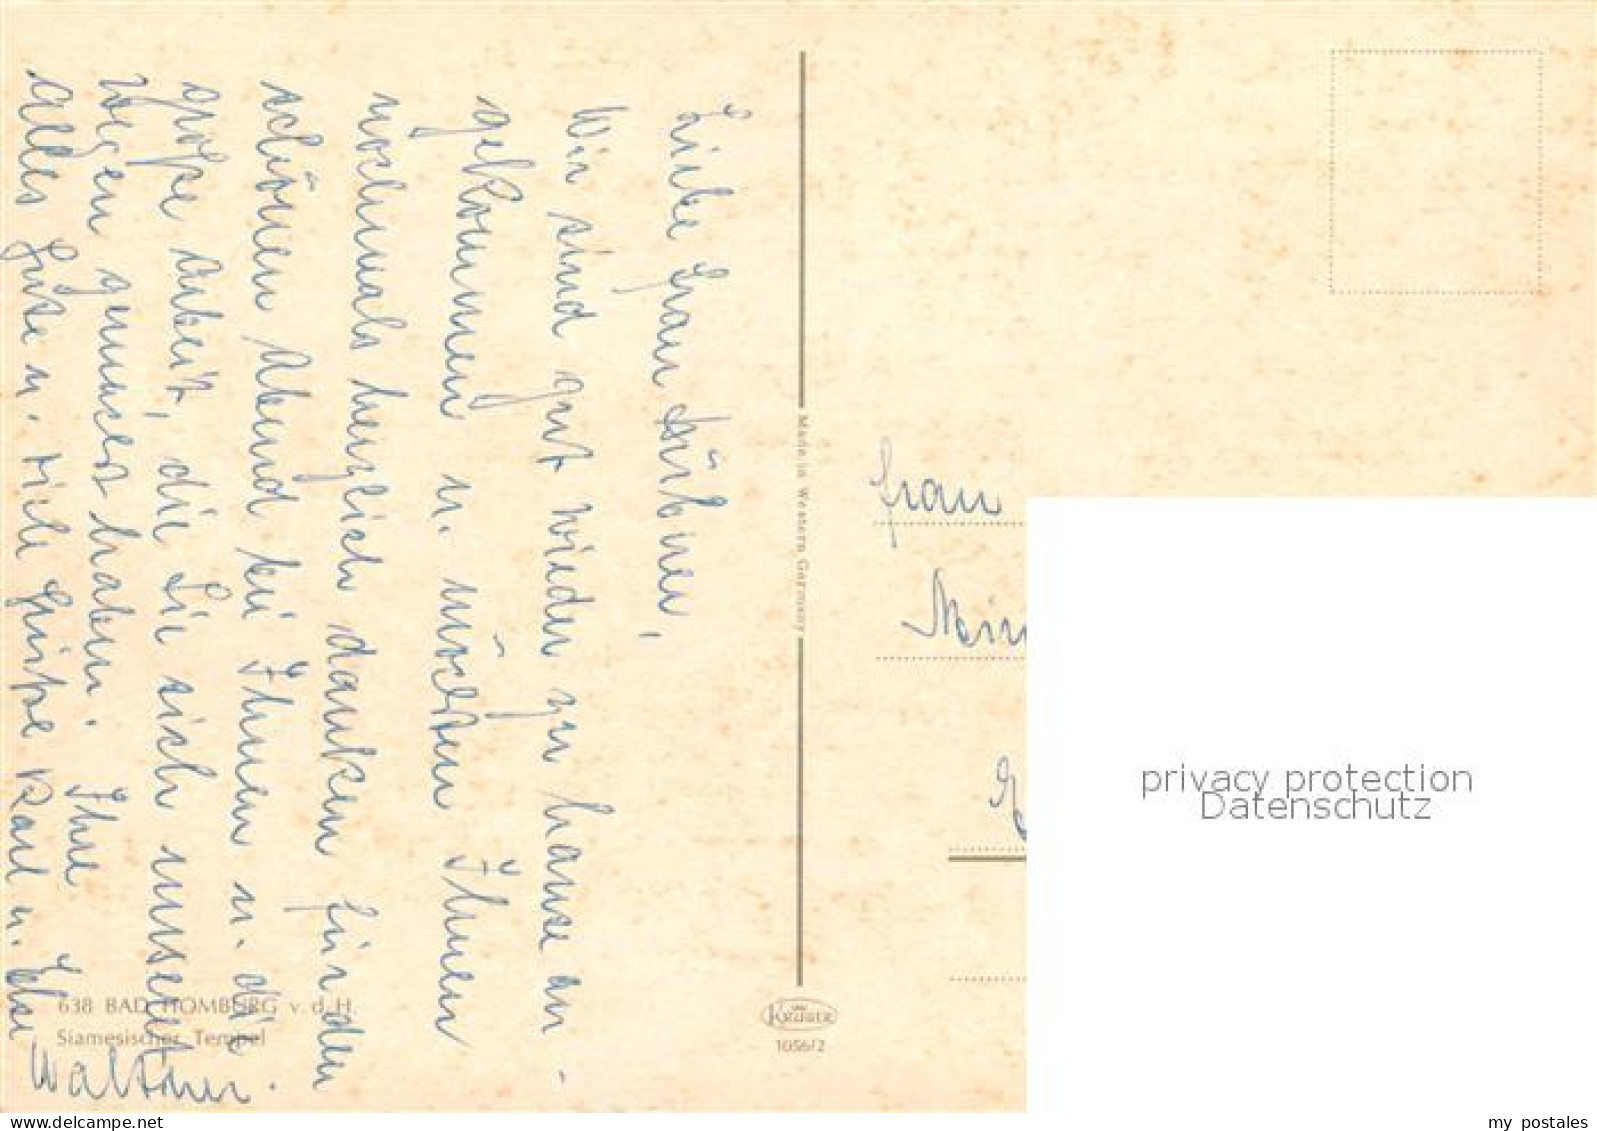 Liebe Frau
Wir sind gut wieder zu hause an-
gekommen u. möchten Ihnen
nochmals herzlich danken für den
schönen Abend bei Ihnen u. die
große Arbeit, die Sie sich unseret
wegen gemacht haben. Ihne
alles Gute u. viele Grüße Karl u. Else
Waltner.
638 BAD HOMBURG v. d. H.
Siamesischer Tempel
Made in Western Germany
KRÜGER
1056/2
Frau
privacy protection
Datenschutz
my postales
www.delcampe.net